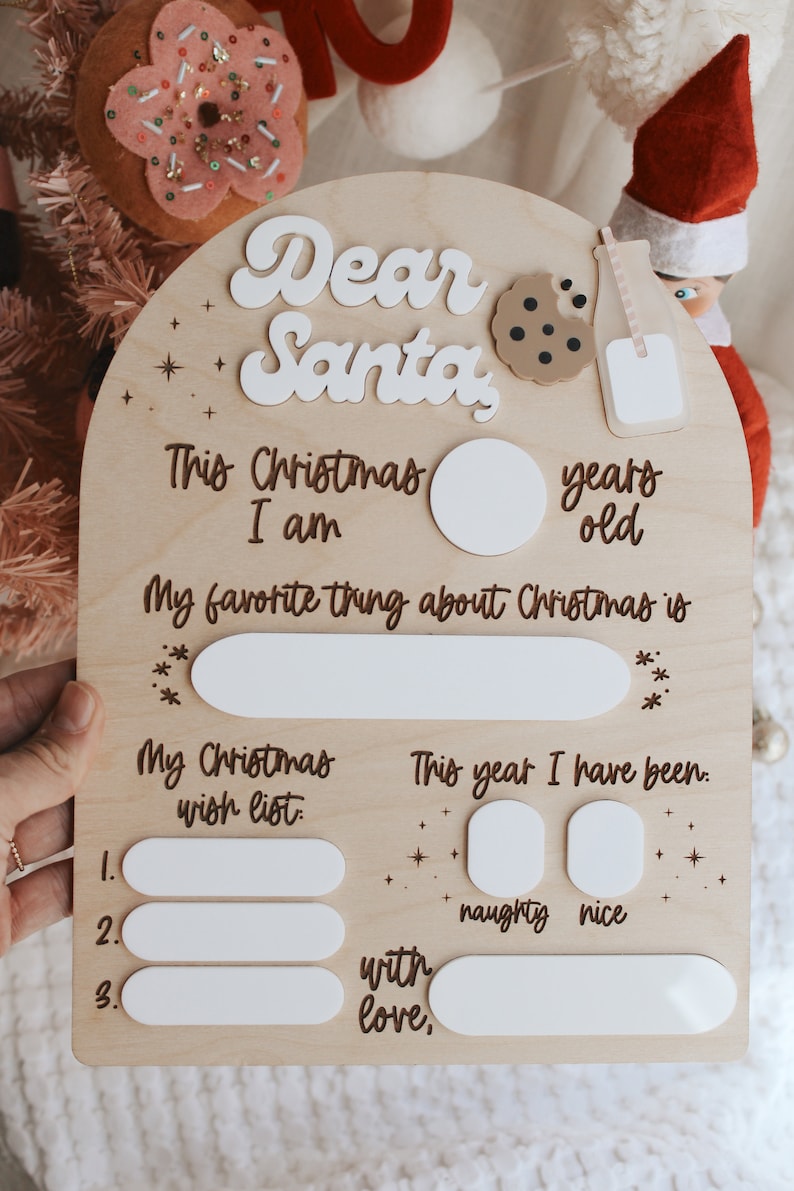 Dear
Santa,
This Christmas
I am
years
old
My favorite thing about Christmas is
My Christmas
wish list:
1.
2.
3.
This year I have been:
naughty nice
with
love,